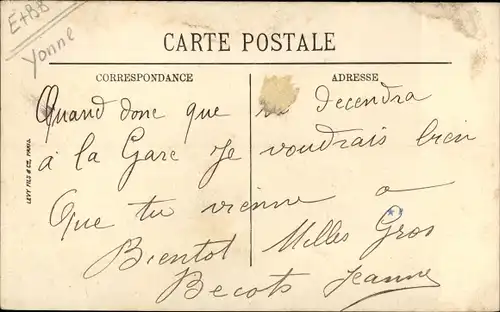 E+BB
Yonne
CARTE POSTALE
CORRESPONDANCE
ADRESSE
Quand donc que decendra
à la Gare Je voudrais bien
Que tu vienne a
Bientot Milles Gros
Becots Jeanne
LEVY FILS & CIE, PARIS